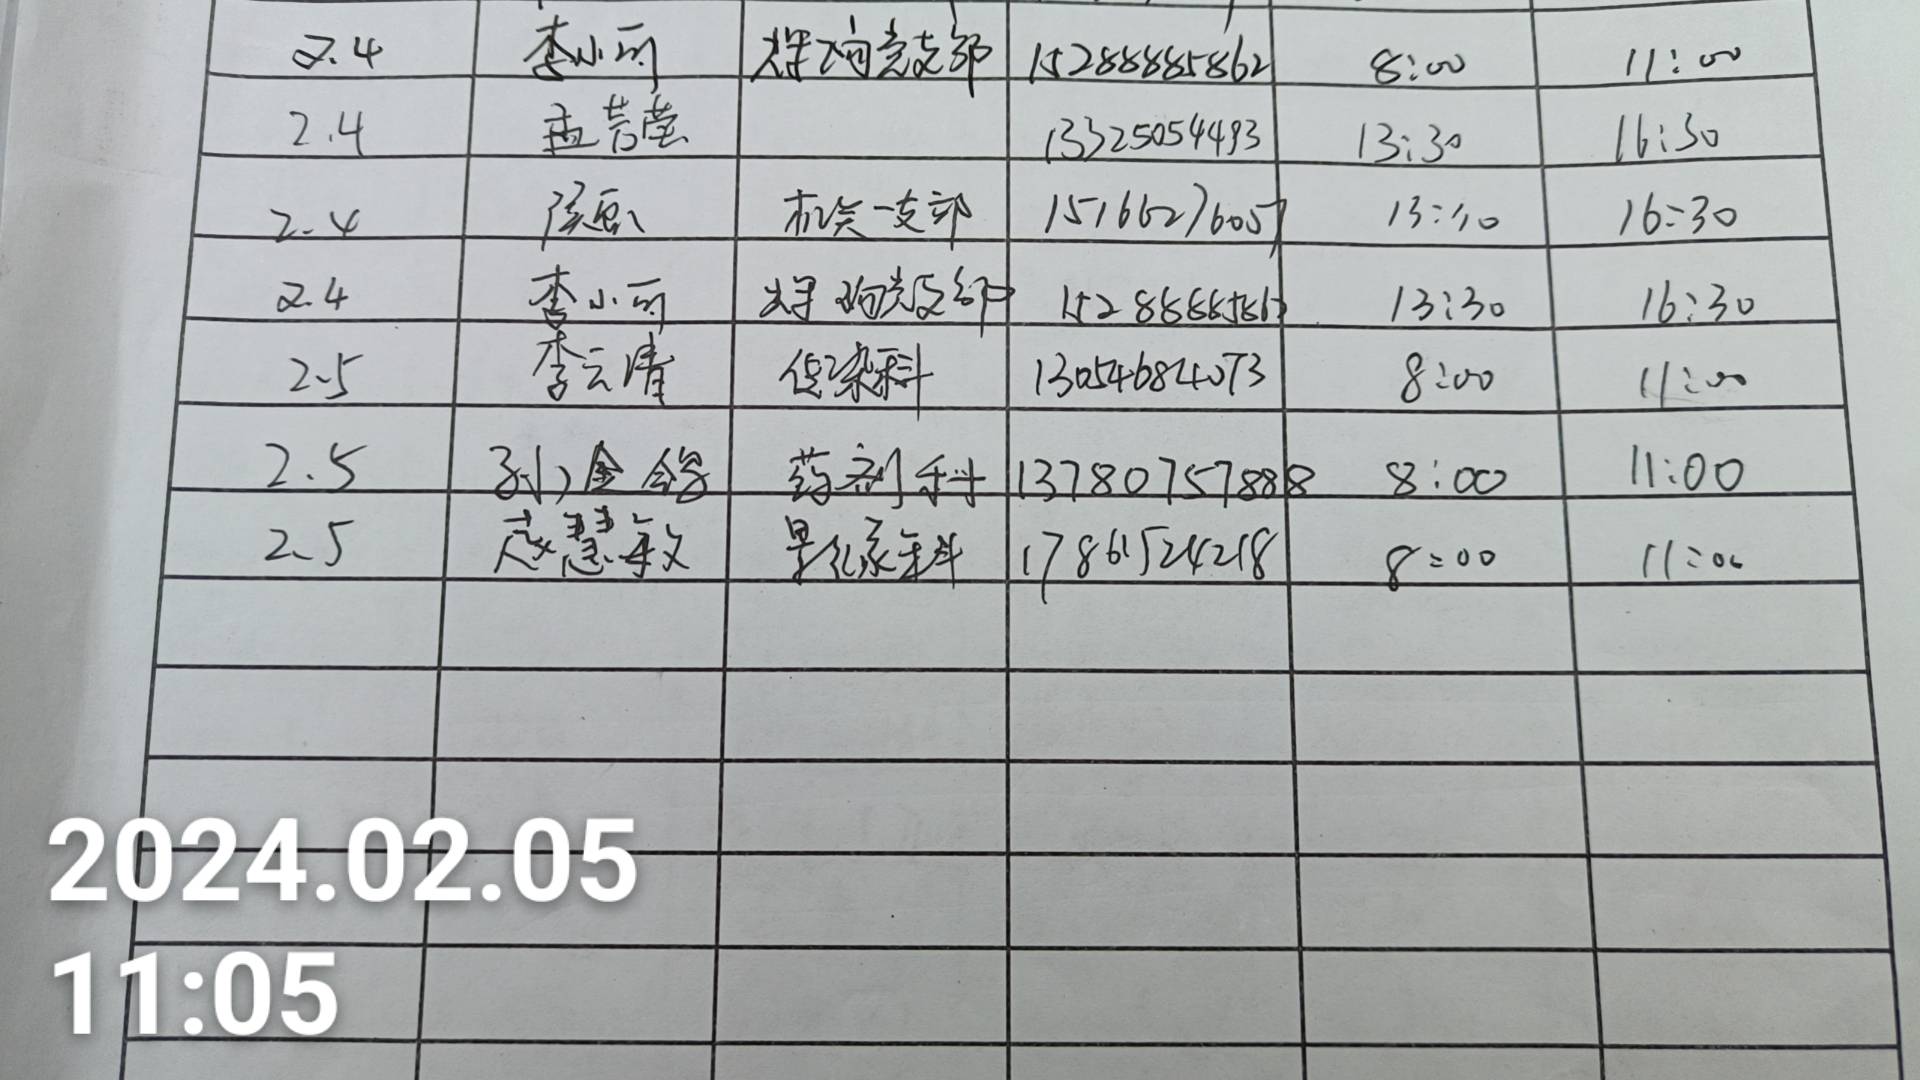 2.4 李小可 党支部 15288885862 8:00 11:00
2.4 孟芸莹 13325054493 13:30 16:30
2.4 机关一支部 15166276057 13:30 16:30
2.4 李小可 党支部 15288885862 13:30 16:30
2.5 李云清 传染科 13054684073 8:00 11:00
2.5 孙金 药剂科 13780757888 8:00 11:00
2.5 慧敏 影像科 17861524218 8:00 11:00
2024.02.05
11:05